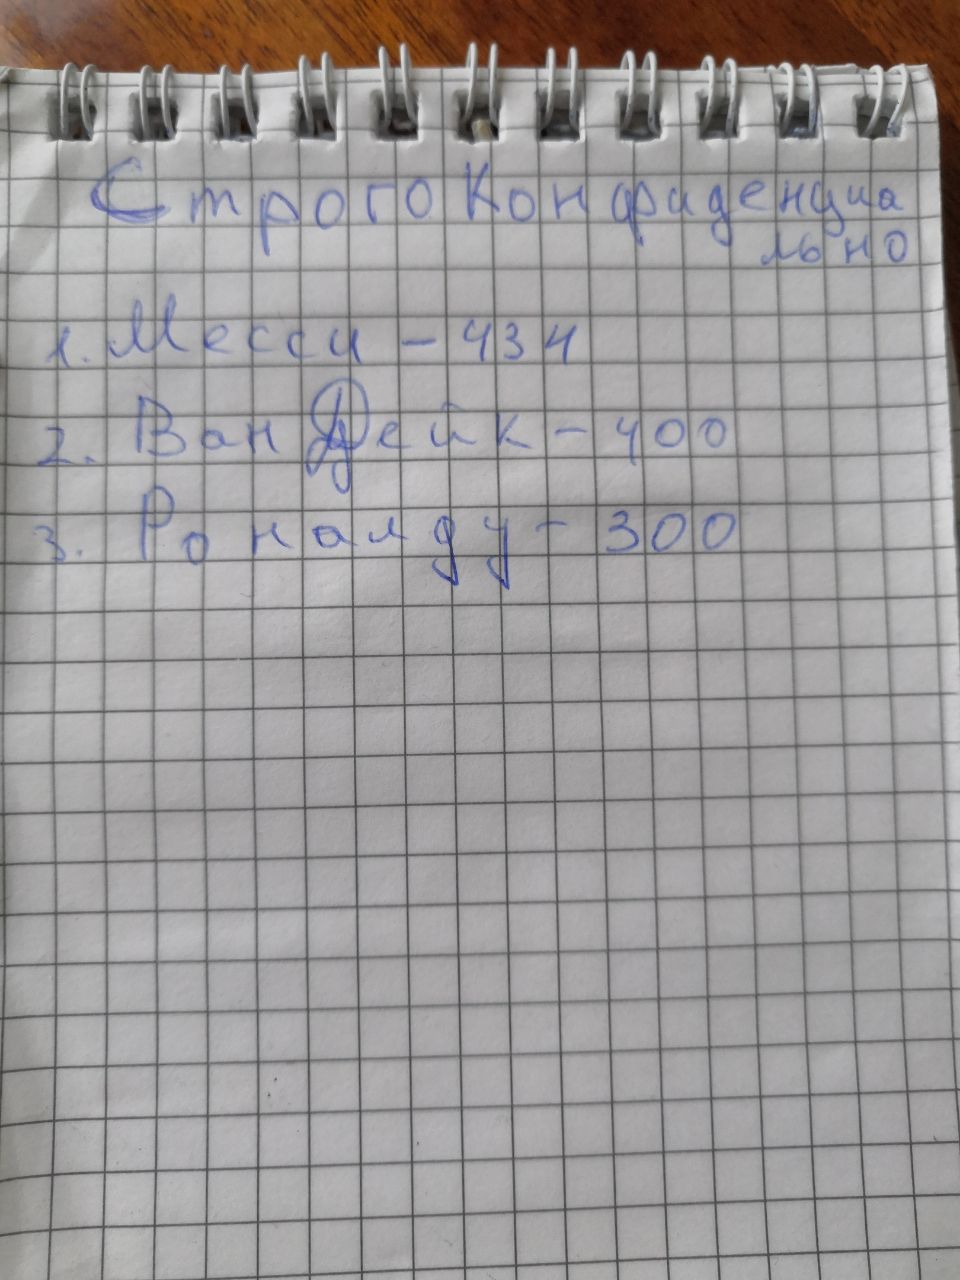 Строго Конфиденциа
льно
1. Месси - 434
2. Ван Дейк - 400
3. Роналду - 300